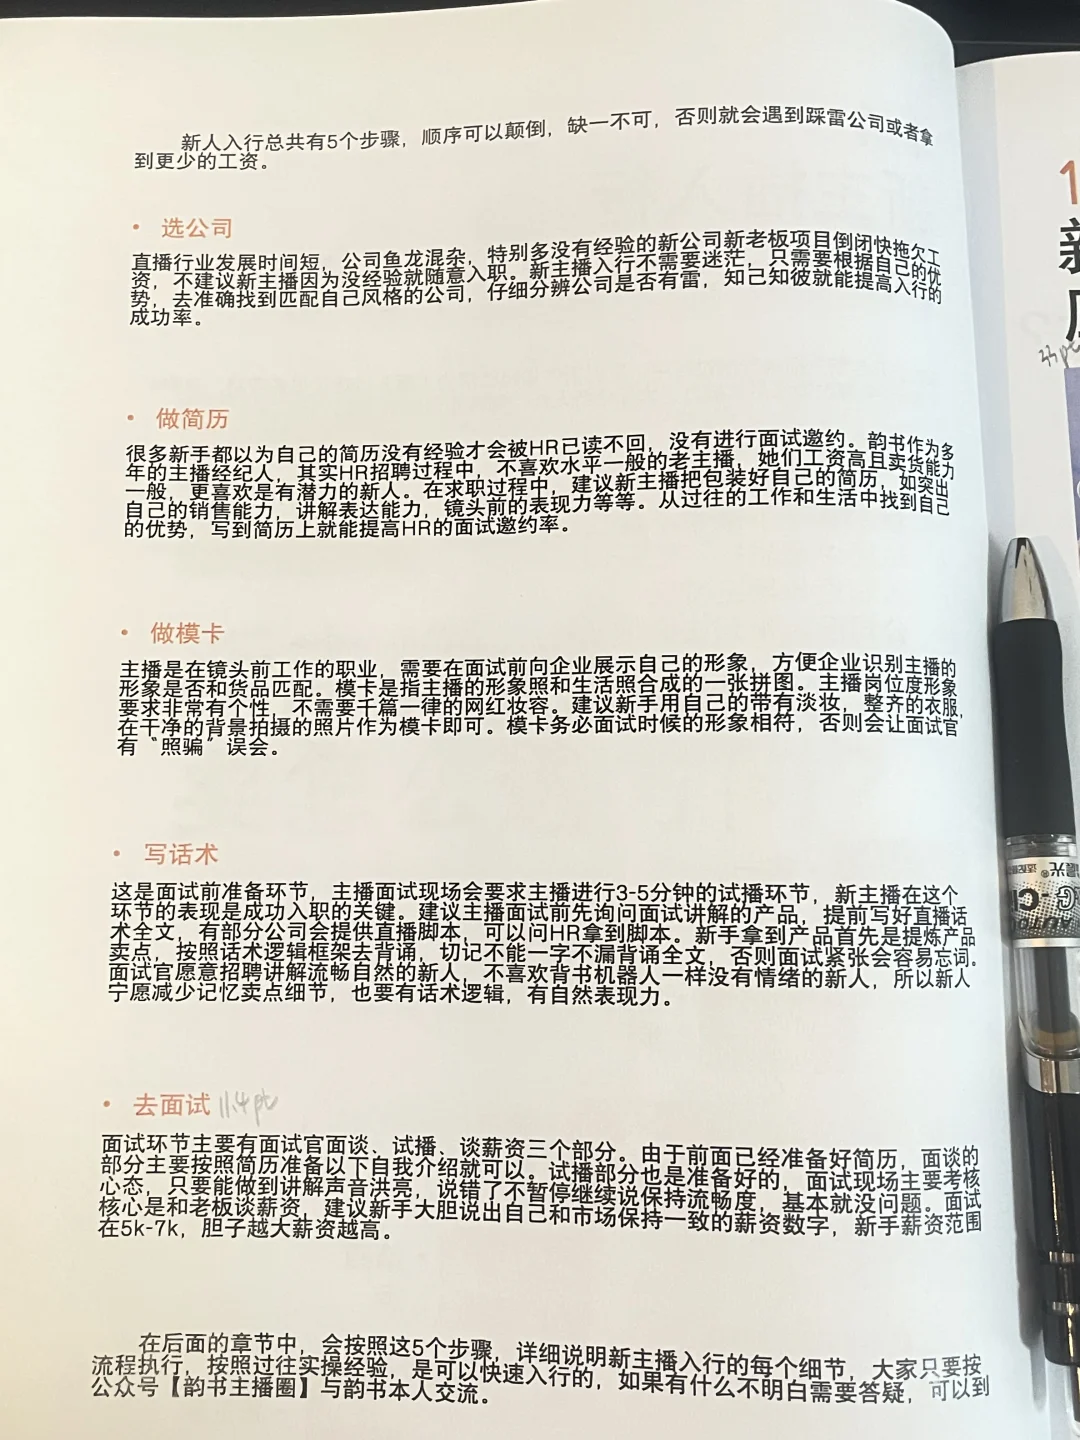 新人入行总共有5个步骤，顺序可以颠倒，缺一不可，否则就会遇到踩雷公司或者拿
到更少的工资。
• 选公司
直播行业发展时间短，公司鱼龙混杂，特别多没有经验的新公司新老板项目倒闭快拖欠工
资，不建议新主播因为没经验就随意入职。新主播入行不需要迷茫，只需要根据自己的优
势，去准确找到匹配自己风格的公司，仔细分辨公司是否有雷，知己知彼就能提高入行的
成功率。
• 做简历
很多新手都以为自己的简历没有经验才会被HR已读不回，没有进行面试邀约。韵书作为多
年的主播经纪人，其实HR招聘过程中，不喜欢水平一般的老主播，她们工资高且卖货能力
一般，更喜欢是有潜力的新人。在求职过程中，建议新主播把包装好自己的简历，如突出
自己的销售能力，讲解表达能力，镜头前的表现力等等。从过往的工作和生活中找到自己
的优势，写到简历上就能提高HR的面试邀约率。
• 做模卡
主播是在镜头前工作的职业，需要在面试前向企业展示自己的形象，方便企业识别主播的
形象是否和货品匹配。模卡是指主播的形象照和生活照合成的一张拼图。主播岗位度形象
要求非常有个性，不需要千篇一律的网红妆容。建议新手用自己的带有淡妆，整齐的衣服，
在干净的背景拍摄的照片作为模卡即可。模卡务必面试时候的形象相符，否则会让面试官
有“照骗”误会。
• 写话术
这是面试前准备环节，主播面试现场会要求主播进行3-5分钟的试播环节，新主播在这个
环节的表现是成功入职的关键。建议主播面试前先询问面试讲解的产品，提前写好直播话
术全文，有部分公司会提供直播脚本，可以问HR拿到脚本。新手拿到产品首先是提炼产品
卖点，按照话术逻辑框架去背诵，切记不能一字不漏背诵全文，否则面试紧张会容易忘词.
面试官愿意招聘讲解流畅自然的新人，不喜欢背书机器人一样没有情绪的新人，所以新人
宁愿减少记忆卖点细节，也要有话术逻辑，有自然表现力。
• 去面试 11.4pt
面试环节主要有面试官面谈、试播、谈薪资三个部分。由于前面已经准备好简历，面谈的
部分主要按照简历准备以下自我介绍就可以。试播部分也是准备好的，面试现场主要考核
心态，只要能做到讲解声音洪亮，说错了不暂停继续说保持流畅度，基本就没问题。面试
核心是和老板谈薪资，建议新手大胆说出自己和市场保持一致的薪资数字，新手薪资范围
在5k-7k，胆子越大薪资越高。
在后面的章节中，会按照这5个步骤，详细说明新主播入行的每个细节，大家只要按
流程执行，按照过往实操经验，是可以快速入行的，如果有什么不明白需要答疑，可以到
公众号【韵书主播圈】与韵书本人交流。